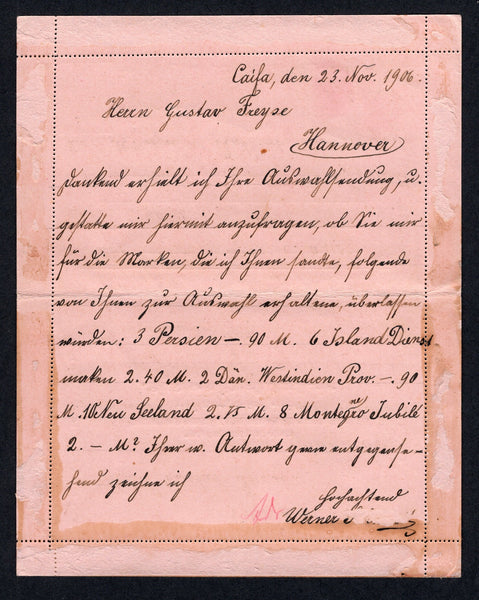 Caifa, den 23. Nov. 1906.
Herrn Gustav Freyse
Hannover
Dankend erhielt ich Ihre Auswahlsendung, u.
gestatte mir hiermit anzufragen, ob Sie mir
für die Marken, die ich Ihnen sandte, folgende
von Ihnen zur Auswahl erhaltene, überlassen
würden: 3 Persien -. 90 M. 6 Island Dienst
marken 2. 40 M. 2 Dän. Westindien Prov. -. 90
M. 10 Neu Seeland 2. 75 M. 8 Montegro ne Jubilé
2. - M? Ihrer w. Antwort gerne entgegenseh-
hend zeichne ich
Hochachtend
Werner